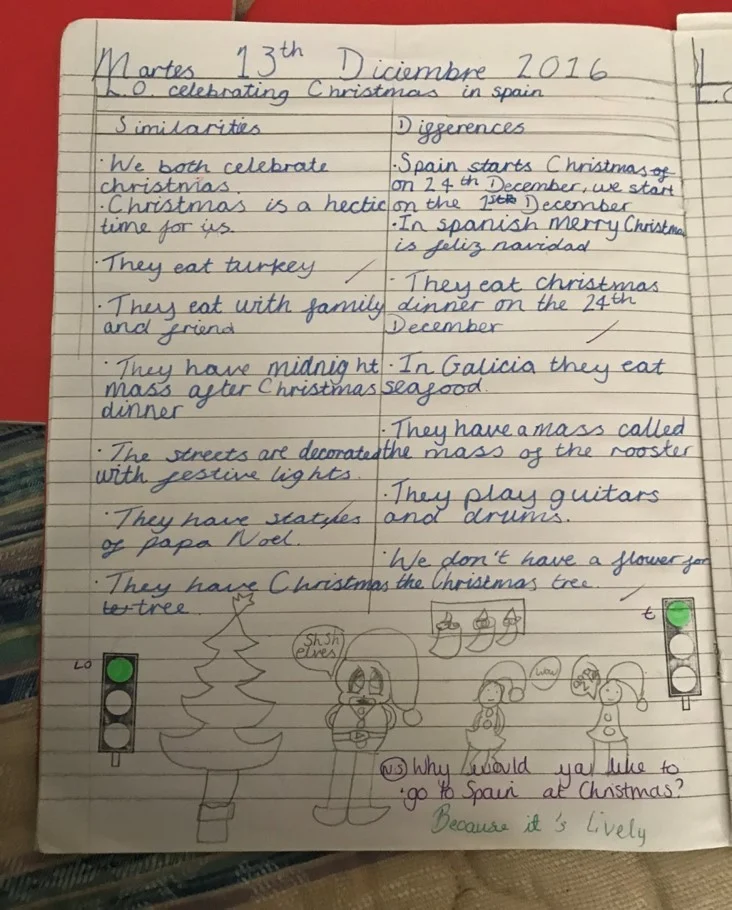 Martes 13th Diciembre 2016
L.O. celebrating Christmas in spain
Similarities
· We both celebrate
christmas.
· Christmas is a hectic
time for us.
· They eat turkey
· They eat with family
and friend
· They have midnight
mass after Christmas
dinner
· The streets are decorated
with festive lights.
· They have statues
of papa Noel.
· They have Christmas
tree
Differences
· Spain starts Christmas
on 24th December, we start
on the 1st December
· In spanish Merry Christmas
is feliz navidad
· They eat christmas
dinner on the 24th
December
· In Galicia they eat
seafood.
· They have a mass called
the mass of the rooster
· They play guitars
and drums.
· We don't have a flower for
the Christmas tree.
LO
Shsh
elves
wow
t
NS Why would you like to
go to Spain at Christmas?
Because it's lively